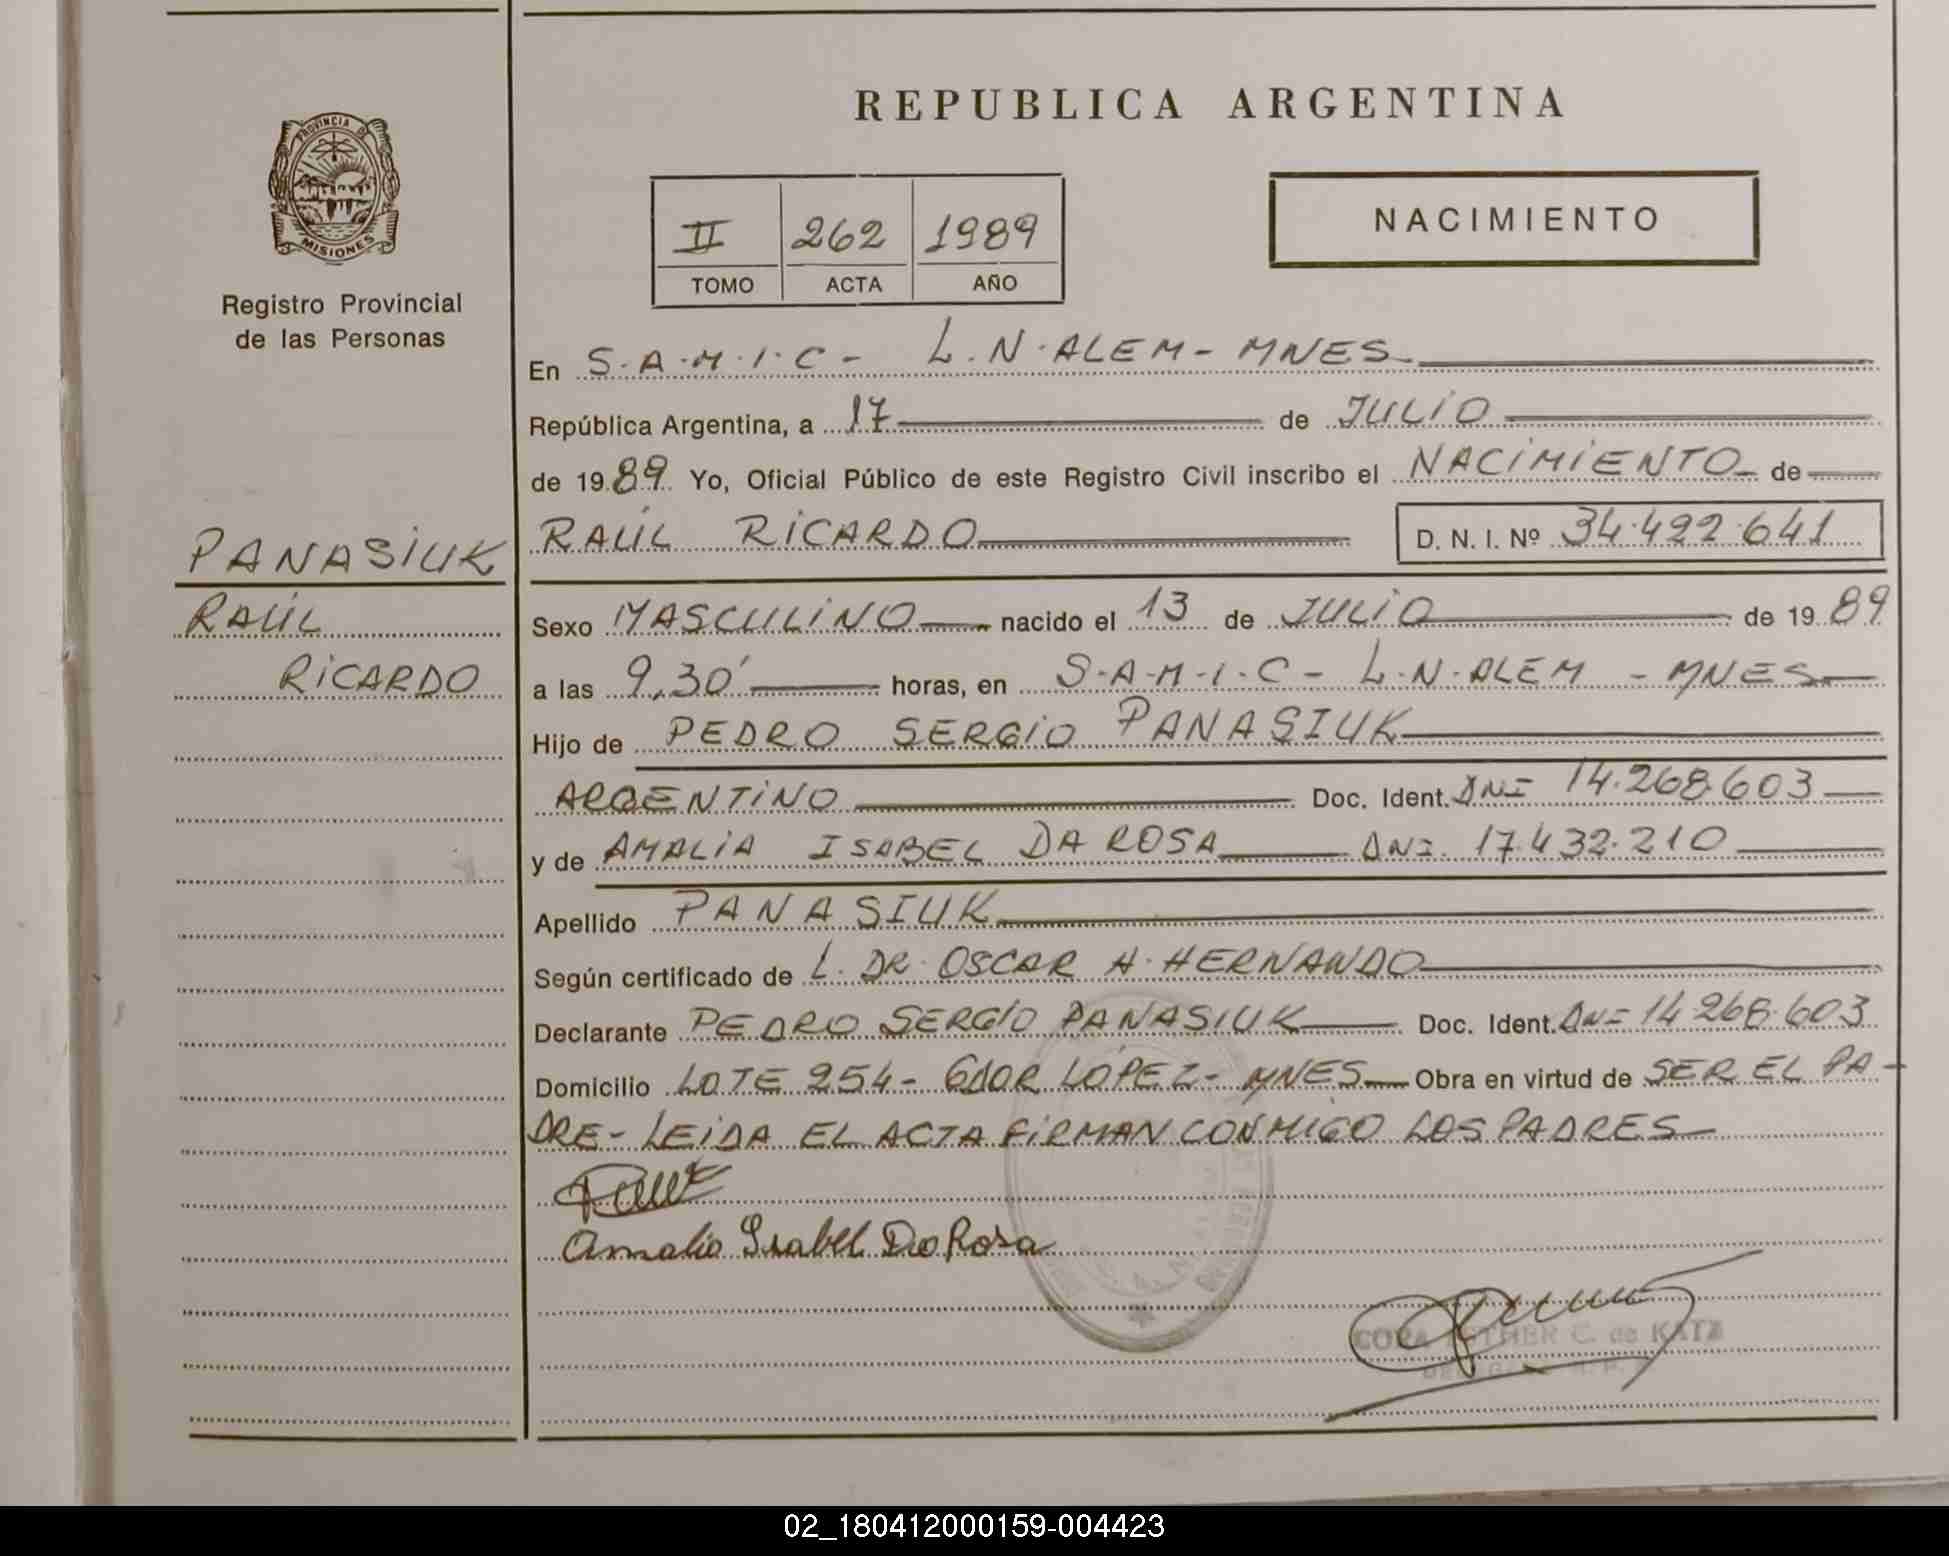 REPUBLICA ARGENTINA
PROVINCIA DE
MISIONES
Registro Provincial
de las Personas
NACIMIENTO
II 262 1989
TOMO ACTA AÑO
En S.A.M.I.C - L.N.ALEM - MNES
República Argentina, a 17 de JULIO
de 1989 Yo, Oficial Público de este Registro Civil inscribo el NACIMIENTO de
PANASIUK
RAÚL RICARDO D. N. I. Nº 34.492.641
RAÚL
RICARDO
Sexo MASCULINO nacido el 13 de JULIO de 1989
a las 9,30' horas, en S.A.M.I.C - L.N.ALEM - MNES
Hijo de PEDRO SERGIO PANASIUK
ARGENTINO Doc. Ident. DNI 14.268.603
y de AMALIA ISABEL DA ROSA DNI. 17.432.210
Apellido PANASIUK
Según certificado de L. DR. OSCAR H. HERNANDO
Declarante PEDRO SERGIO PANASIUK Doc. Ident. DNI 14.268.603
Domicilio LOTE 254 - GDOR LÓPEZ - MNES Obra en virtud de SER EL PA-
DRE - LEIDA EL ACTA FIRMAN CONMIGO LOS PADRES
Amalia Isabel Da Rosa
ESTHER C. de KATZ
02_180412000159-004423